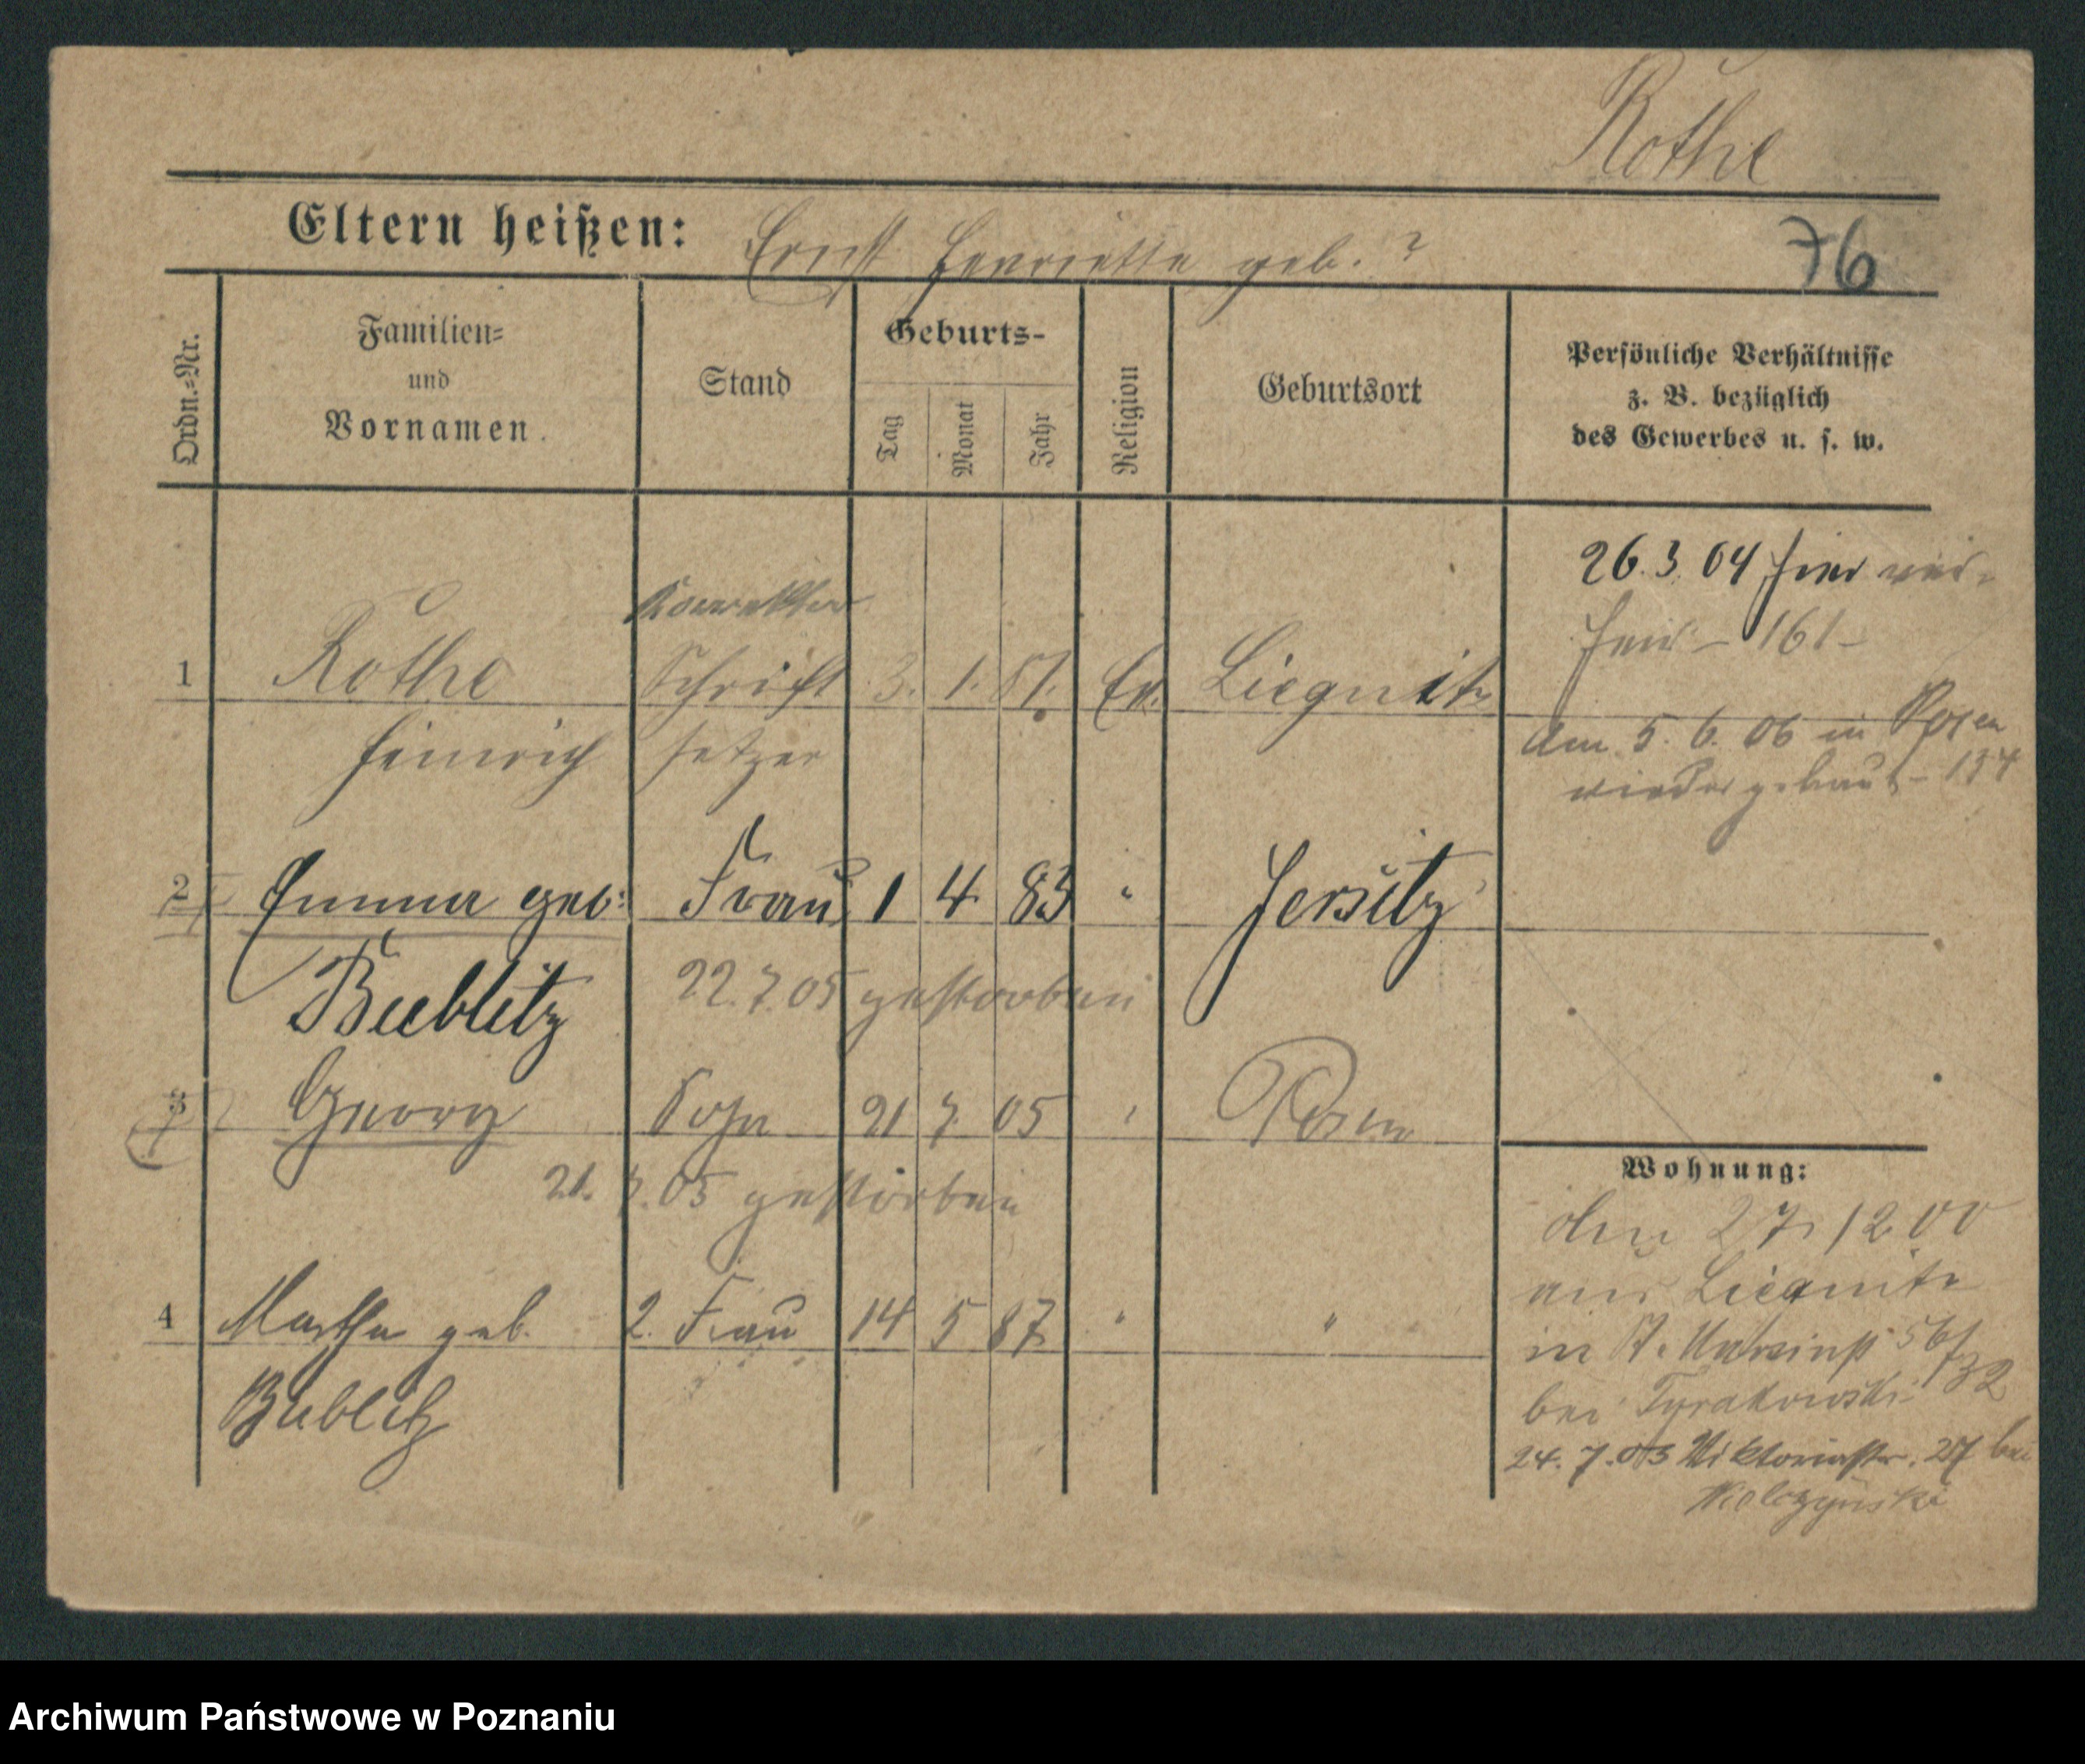 Rothe
Eltern heißen: Ernst Henriette geb. ?
76
Ordn.=Nr.
Familien=
und
Vornamen.
Stand
Geburts-
Tag
Monat
Jahr
Religion
Geburtsort
Persönliche Verhältnisse
z. B. bezüglich
des Gewerbes u. s. w.
26. 3. 04 hier ver-
heir. - 161 -
Am 5. 6. 06 in Posen
wieder getraut - 134
Korrektor
1 Rothe Schrift 3. 1. 81. Ev. Liegnitz
Heinrich setzer
2 Emma geb: Frau 1 4. 83 " Jersitz
Bieblitz 22.7.05 gestorben
3 Georg Sohn 21 7. 05 " Posen
21. 7. 05 gestorben
4 Martha geb. 2. Frau 14 5 87 " "
Bieblitz
Wohnung:
den 27. 12 00
aus Liegnitz
in St. 56/32
bei Tyrakowski
24. 7. 03 Viktoriastr. 27 bei